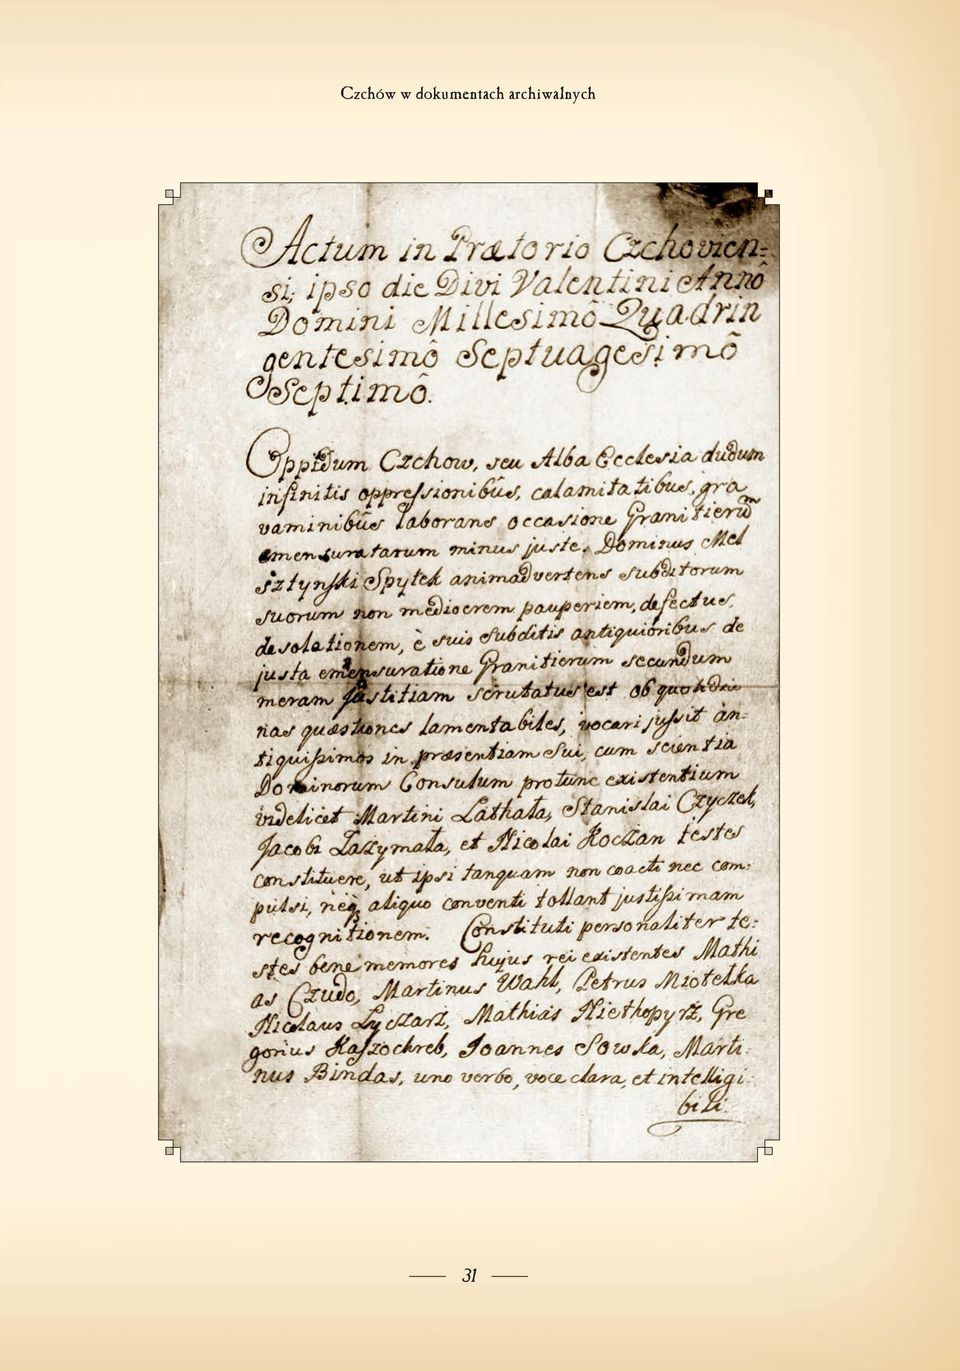 Czchów w dokumentach archiwalnych
Actum in Prætorio Czchovien=
si, ipso die Divi Valentini Annô
Domini Millesimô Quadrin
gentesimô Septuagesimô
Septimô.
Oppidum Czchow, seu Alba Ecclesia dudum
infinitis oppressionibûs, calamitatibus, gra
vaminibûs laborans occasione Granitierũ
emensuratarum minus juste. Dominus Mel
sztynski Spytek animadvertens Subditorum
suorum non mediocrem pauperiem, defectus,
desolationem, è suis Subditis antiquioribus de
justa emensuratione Granitierum secundum
meram justitiam scrutatus est ob quotidia
nas quæstiones lamentabiles, vocari jussit an=
tiquissimos in præsentiam Sui, cum scientia
Dominorum Consulum protunc existentium
videlicèt Martini Lathała, Stanislai Czyczek,
Jacobi Łazymała, et Nicolai Koczan testes
constituere, ut ipsi tanquam non coacti nec com=
pulsi, neq; aliquo conventi tollant justissimam
recognitionem. Constituti personaliter te=
stes bene memores hujus rei existentes Mathi
as Czudo, Martinus Wahl, Petrus Miotełka
Nicolaus Lyczarz, Mathias Niethopyrz, Gre
gorius Kaszochreb, Joannes Sowka, Marti
nus Bindas, uno verbo, voce clara, et intelligi=
bili.
31